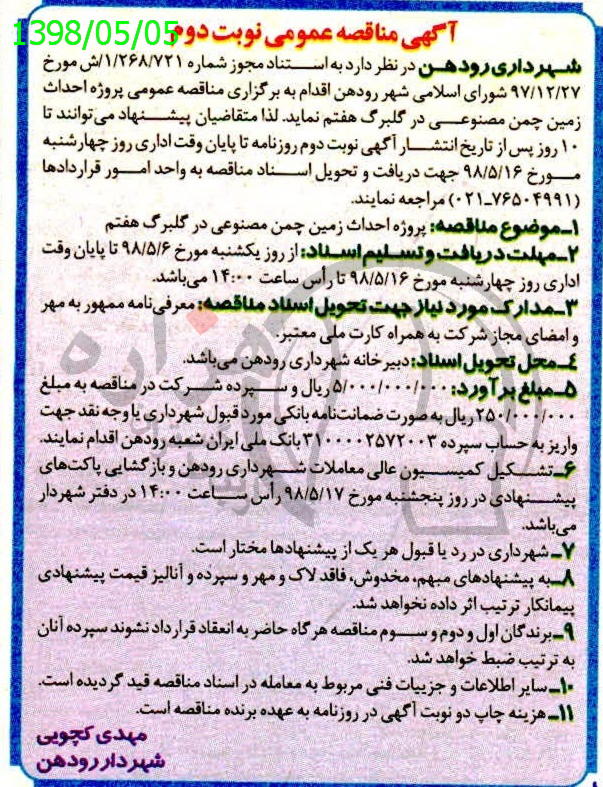 1398/05/05
آگهی مناقصه عمومی نوبت دوم
شهرداری رودهن در نظر دارد به استناد مجوز شماره ۱/۲۶۸/۷۲۱/ش مورخ
۹۷/۱۲/۲۷ شورای اسلامی شهر رودهن اقدام به برگزاری مناقصه عمومی پروژه احداث
زمین چمن مصنوعی در گلبرگ هفتم نماید. لذا متقاضیان پیشنهاد می‌توانند تا
۱۰ روز پس از تاریخ انتشار آگهی نوبت دوم روزنامه تا پایان وقت اداری روز چهارشنبه
مورخ ۹۸/۵/۱۶ جهت دریافت و تحویل اسناد مناقصه به واحد امور قراردادها
(۷۶۵۰۴۹۹۱-۰۲۱) مراجعه نمایند.
۱ـ موضوع مناقصه: پروژه احداث زمین چمن مصنوعی در گلبرگ هفتم
۲ـ مهلت دریافت و تسلیم اسناد: از روز یکشنبه مورخ ۹۸/۵/۶ تا پایان وقت
اداری روز چهارشنبه مورخ ۹۸/۵/۱۶ تا رأس ساعت ۱۴:۰۰ می‌باشد.
۳ـ مدارک مورد نیاز جهت تحویل اسناد مناقصه: معرفی‌نامه ممهور به مهر
و امضای مجاز شرکت به همراه کارت ملی معتبر.
۴ـ محل تحویل اسناد: دبیرخانه شهرداری رودهن می‌باشد.
۵ـ مبلغ برآورد: ۵/۰۰۰/۰۰۰/۰۰۰ ریال و سپرده شرکت در مناقصه به مبلغ
۲۵۰/۰۰۰/۰۰۰ ریال به صورت ضمانت‌نامه بانکی مورد قبول شهرداری یا وجه نقد جهت
واریز به حساب سپرده ۳۱۰۰۰۰۲۵۷۲۰۰۳ بانک ملی ایران شعبه رودهن اقدام نمایند.
۶ـ تشکیل کمیسیون عالی معاملات شهرداری رودهن و بازگشایی پاکت‌های
پیشنهادی در روز پنجشنبه مورخ ۹۸/۵/۱۷ رأس ساعت ۱۴:۰۰ در دفتر شهردار
می‌باشد.
۷ـ شهرداری در رد یا قبول هر یک از پیشنهادها مختار است.
۸ـ به پیشنهادهای مبهم، مخدوش، فاقد لاک و مهر و سپرده و آنالیز قیمت پیشنهادی
پیمانکار ترتیب اثر داده نخواهد شد.
۹ـ برندگان اول و دوم و سوم مناقصه هرگاه حاضر به انعقاد قرارداد نشوند سپرده آنان
به ترتیب ضبط خواهد شد.
۱۰ـ سایر اطلاعات و جزییات فنی مربوط به معامله در اسناد مناقصه قید گردیده است.
۱۱ـ هزینه چاپ دو نوبت آگهی در روزنامه به عهده برنده مناقصه است.
مهدی کچویی
شهردار رودهن